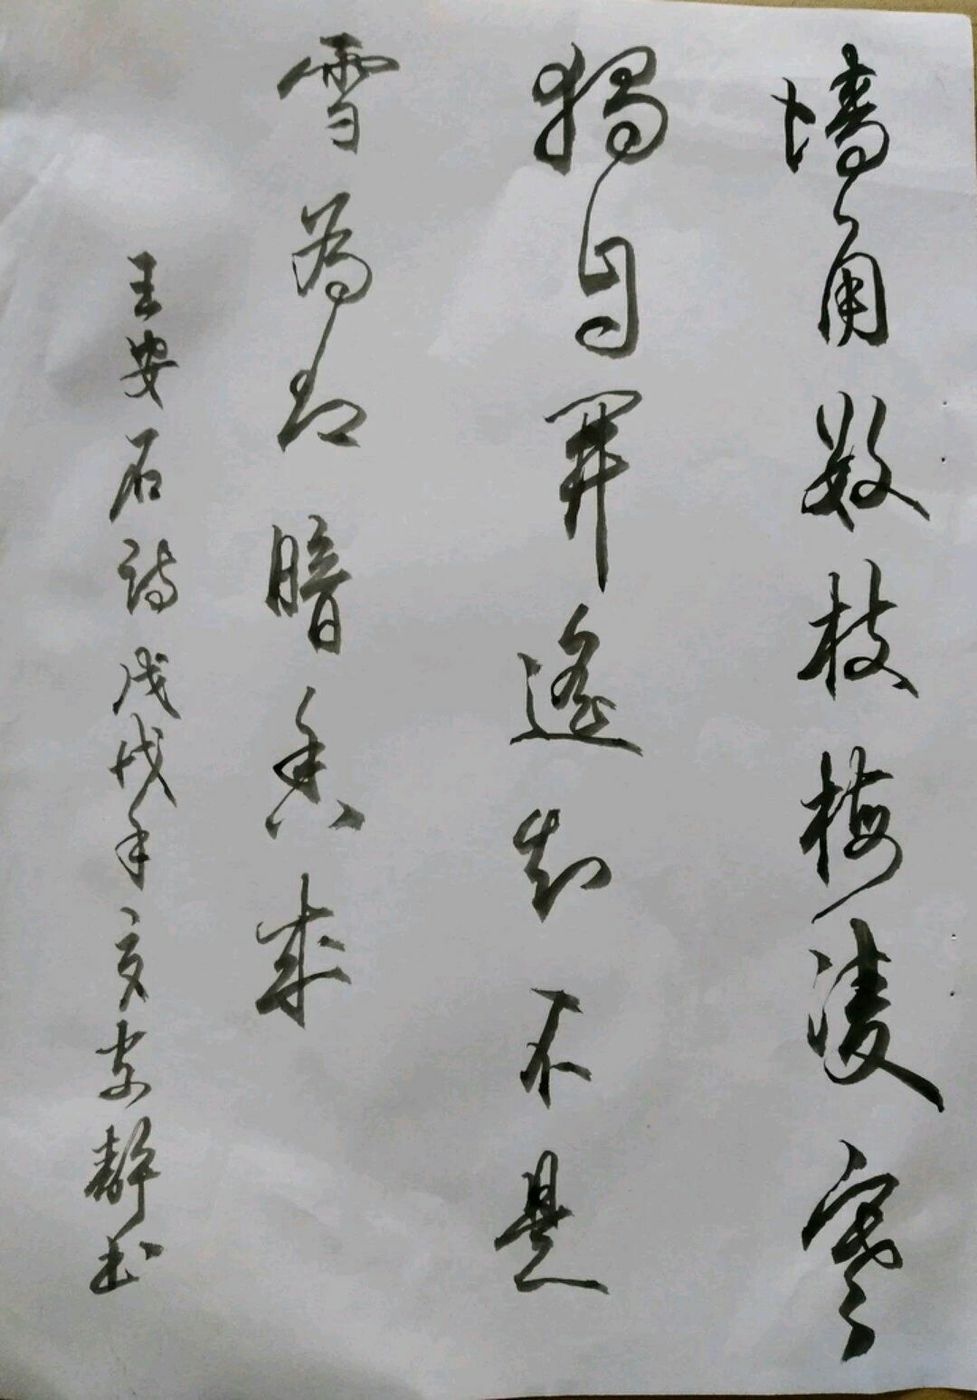 墙角数枝梅凌寒
獨自開遥知不是
雪為却暗香来
王安石诗戊戌年夏安静书